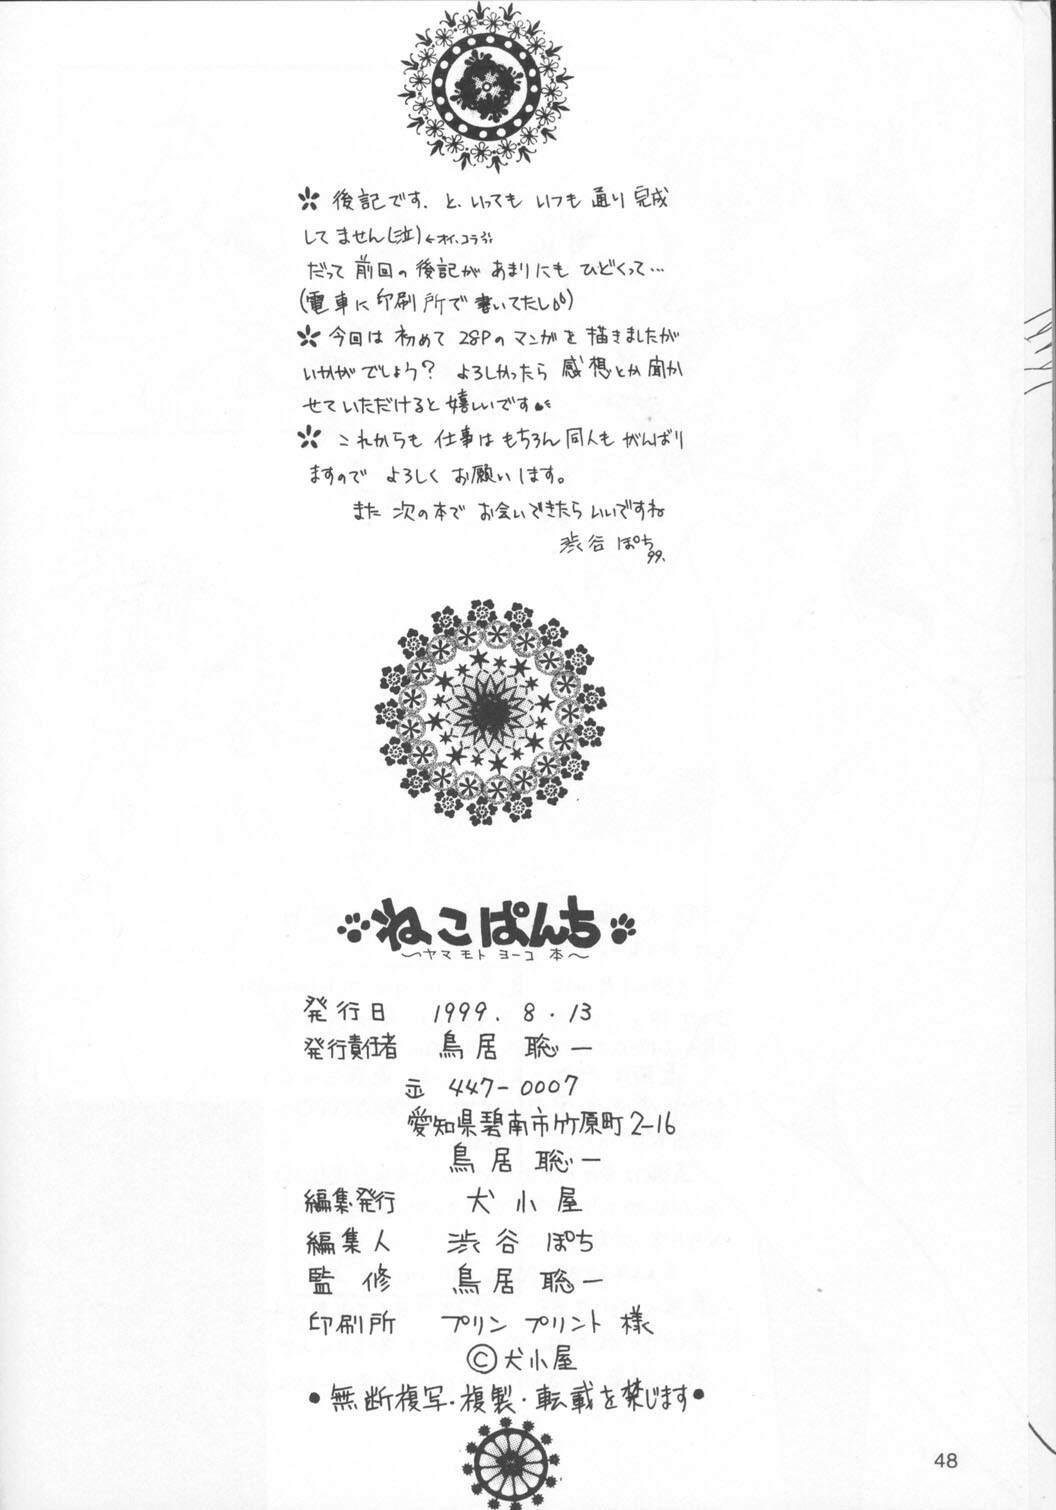 後記です、と、いっても いつも 通り 完成
してません(泣)←オイ、コラ
だって 前回の 後記が あまりにも ひどくって…
(電車に 印刷所で 書いてたし)
今回は 初めて 28Pの マンガを 描きましたが
いかがでしょう? よろしかったら 感想とか 聞か
せて いただけると 嬉しいです
これからも 仕事は もちろん 同人も がんばり
ますので よろしく お願いします。
また 次の本で お会いできたら いいですね
渋谷 ぽち
99.
ねこぱんち
〜ヤマモト ヨーコ 本〜
発行日 1999.8.13
発行責任者 鳥居 聡一
〒447-0007
愛知県碧南市竹原町2-16
鳥居 聡一
編集発行 犬小屋
編集人 渋谷 ぽち
監修 鳥居 聡一
印刷所 プリン プリント 様
©犬小屋
●無断複写・複製・転載を禁じます●
48